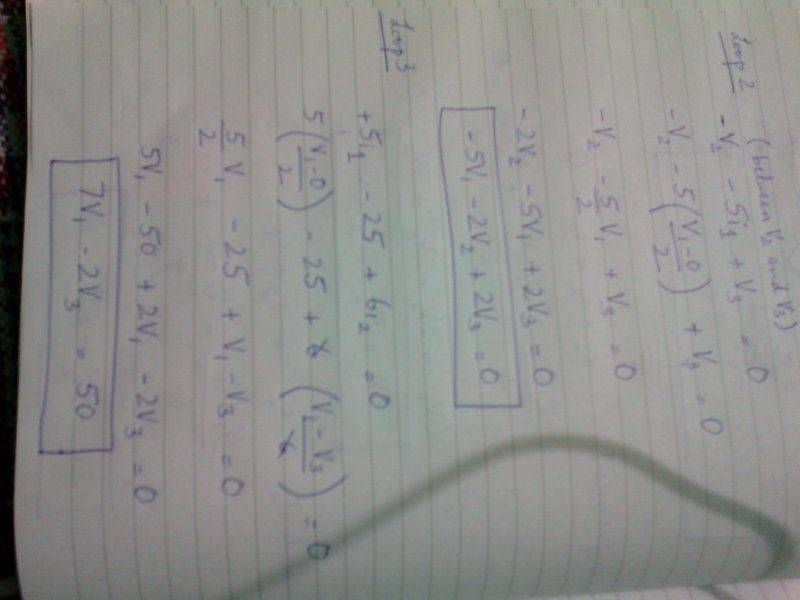 Loop 2 (between V2 and V3)
-V2 - 5i1 + V3 = 0
-V2 - 5((V1-0)/2) + V3 = 0
-V2 - 5/2 V1 + V3 = 0
-2V2 - 5V1 + 2V3 = 0
-5V1 - 2V2 + 2V3 = 0
Loop 3
+5i1 - 25 + 6i2 = 0
5((V1-0)/2) - 25 + 6((V1-V3)/6) = 0
5/2 V1 - 25 + V1 - V3 = 0
5V1 - 50 + 2V1 - 2V3 = 0
7V1 - 2V3 = 50